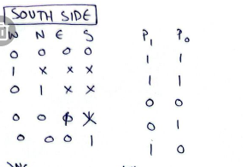 SOUTH SIDE
W N E S P₁ P₀
0 0 0 0 1 1
1 x x x 1 1
0 1 x x 0 0
0 0 ϕ x 0 1
0 0 0 1 1 0